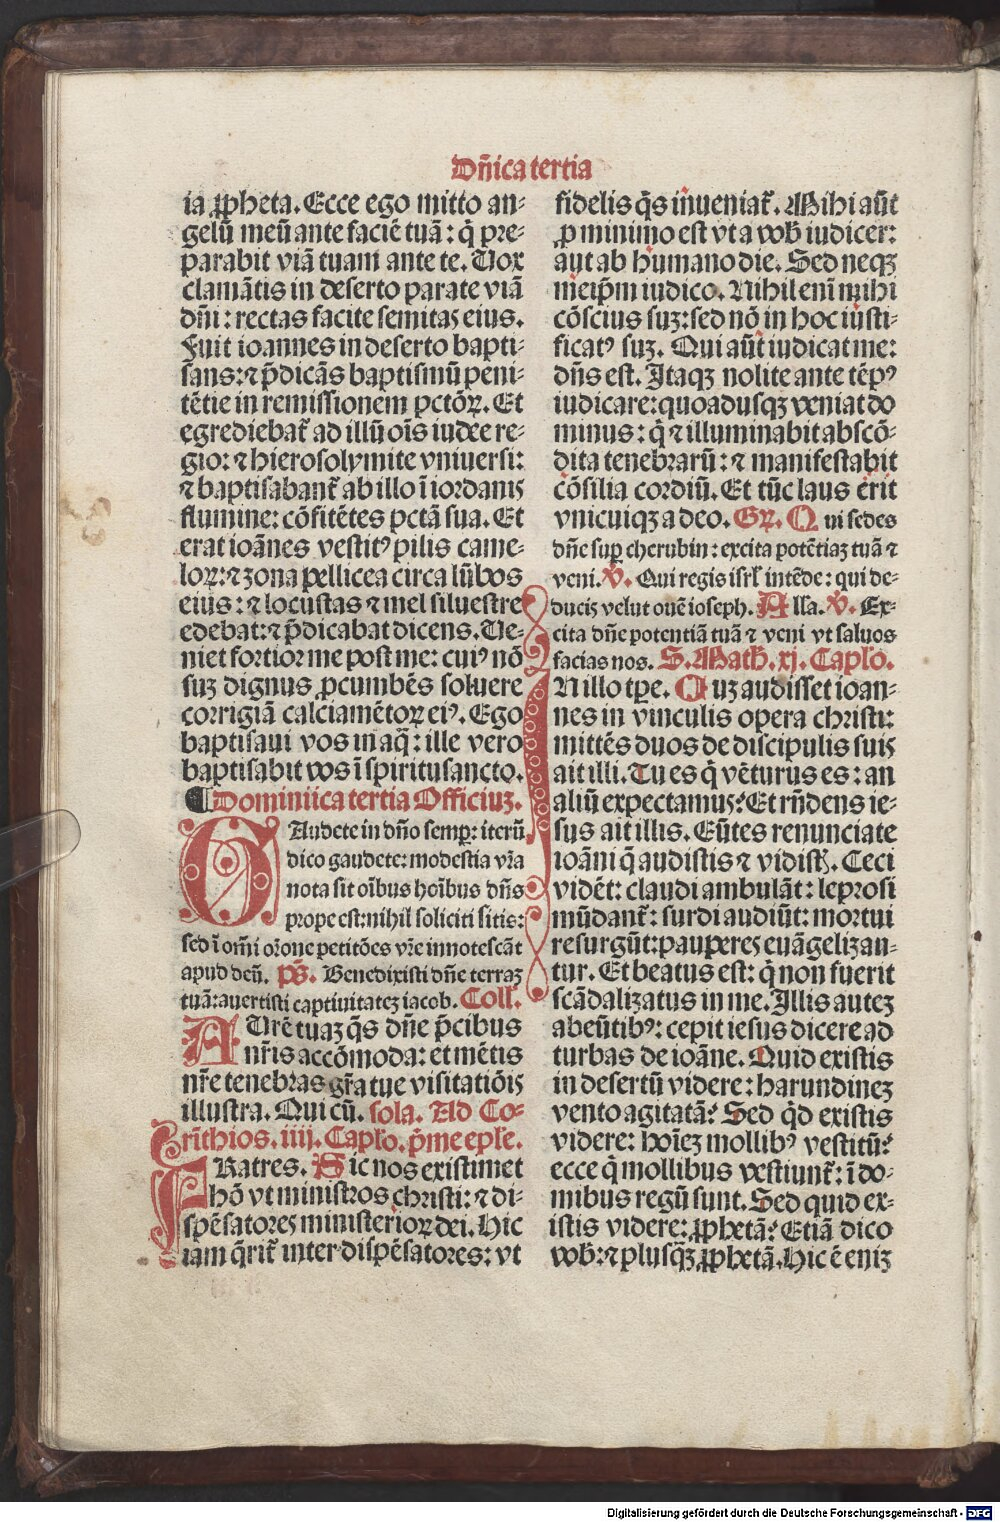 Dn̄ica tertia
ia ꝓpheta. Ecce ego mitto an-
gelū meū ante faciē tuā: q̄ pre-
parabit viā tuam ante te. Vox
clamātis in deserto parate viā
dn̄i: rectas facite semitas eius.
Fuit ioannes in deserto bapti-
sans: ⁊ p̄dicās baptismū peni-
tētie in remissionem pctōꝝ. Et
egrediebat̄ ad illū oīs iudee re-
gio: ⁊ hierosolymite vniuersi:
⁊ baptisabant̄ ab illo ī iordanis
flumine: cōfitētes pctā sua. Et
erat ioānes vestitꝰ pilis came-
loꝝ: ⁊ zona pellicea circa lūbos
eius: ⁊ locustas ⁊ mel siluestre
edebat: ⁊ p̄dicabat dicens. Ue-
niet fortior me post me: cuiꝰ nō
suꝫ dignus ꝓcumbēs soluere
corrigiā calciamētoꝝ eiꝰ. Ego
baptisaui vos in aq̄: ille vero
baptisabit vos ī spiritusancto.
¶ Dominiica tertia Officiuꝫ.
GAudete in dn̄o semꝑ: iterū
dico gaudete: modestia vr̄a
nota sit oībus hoībus dn̄s
prope est: nihil soliciti sitis:
sed ī om̄i or̄one petitōes vr̄e innotescāt
apud deū. ps̄. Benedixisti dn̄e terraꝫ
tuā: auertisti captiuitateꝫ iacob. Coll̄.
AUrē tuaꝫ q̄s dn̄e p̄cibus
nr̄is accōmoda: et mētis
nr̄e tenebras gr̄a tue visitatiōis
illustra. Qui cū. sola. Ad Co-
rīthios. iiij. Capl̄o. p̄me epl̄e.
FRatres. Sic nos existimet
hō vt ministros christi: ⁊ di-
spēsatores ministerioꝝ dei. Hic
iam q̄rit̄ inter dispēsatores: vt
fidelis q̄s inueniat̄. Mihi aūt
ꝓ minimo est vt a vob̄ iudicer:
aut ab humano die. Sed neqꝫ
meip̄m iudico. Nihil enī mihi
cōscius suꝫ: sed nō in hoc iusti-
ficatꝰ suꝫ. Qui aūt iudicat me:
dn̄s est. Itaqꝫ nolite ante tēpꝰ
iudicare: quoadusqꝫ veniat do
minus: q̄ ⁊ illuminabit abscō-
dita tenebrarū: ⁊ manifestabit
cōsilia cordiū. Et tūc laus erit
vnicuiqꝫ a deo. Gꝝ. Qui sedes
dn̄e suꝑ cherubin: excita potētiaꝫ tuā ⁊
veni. V̄. Qui regis isrl̄ intēde: qui de-
ducis velut ouē ioseph. Alla. V̄. Ex-
cita dn̄e potentiā tuā ⁊ veni vt saluos
facias nos. S. Math̄. xj. Capl̄o.
IN illo tp̄e. Cuꝫ audisset ioan-
nes in vinculis opera christi:
mittēs duos de discipulis suis
ait illi. Tu es q̄ vēturus es: an
aliū expectamus? Et rn̄dens ie-
sus ait illis. Eūtes renunciate
ioāni q̄ audistis ⁊ vidist̄. Ceci
vidēt: claudi ambulāt: leprosi
mūdant̄: surdi audiūt: mortui
resurgūt: pauperes euāgelizan-
tur. Et beatus est: q̄ non fuerit
scādalizatus in me. Illis auteꝫ
abeūtibꝰ: cepit iesus dicere ad
turbas de ioāne. Quid existis
in desertū videre: harundineꝫ
vento agitatā? Sed q̄d existis
videre: hoīeꝫ mollibꝰ vestitū?
ecce q̄ mollibus vestiunt̄: ī do-
mibus regū sunt. Sed quid ex-
istis videre: ꝓphetā? Etiā dico
vob̄: ⁊ plusq̄ꝫ ꝓphetā. Hic ē eniꝫ
Digitalisierung gefördert durch die Deutsche Forschungsgemeinschaft - DFG